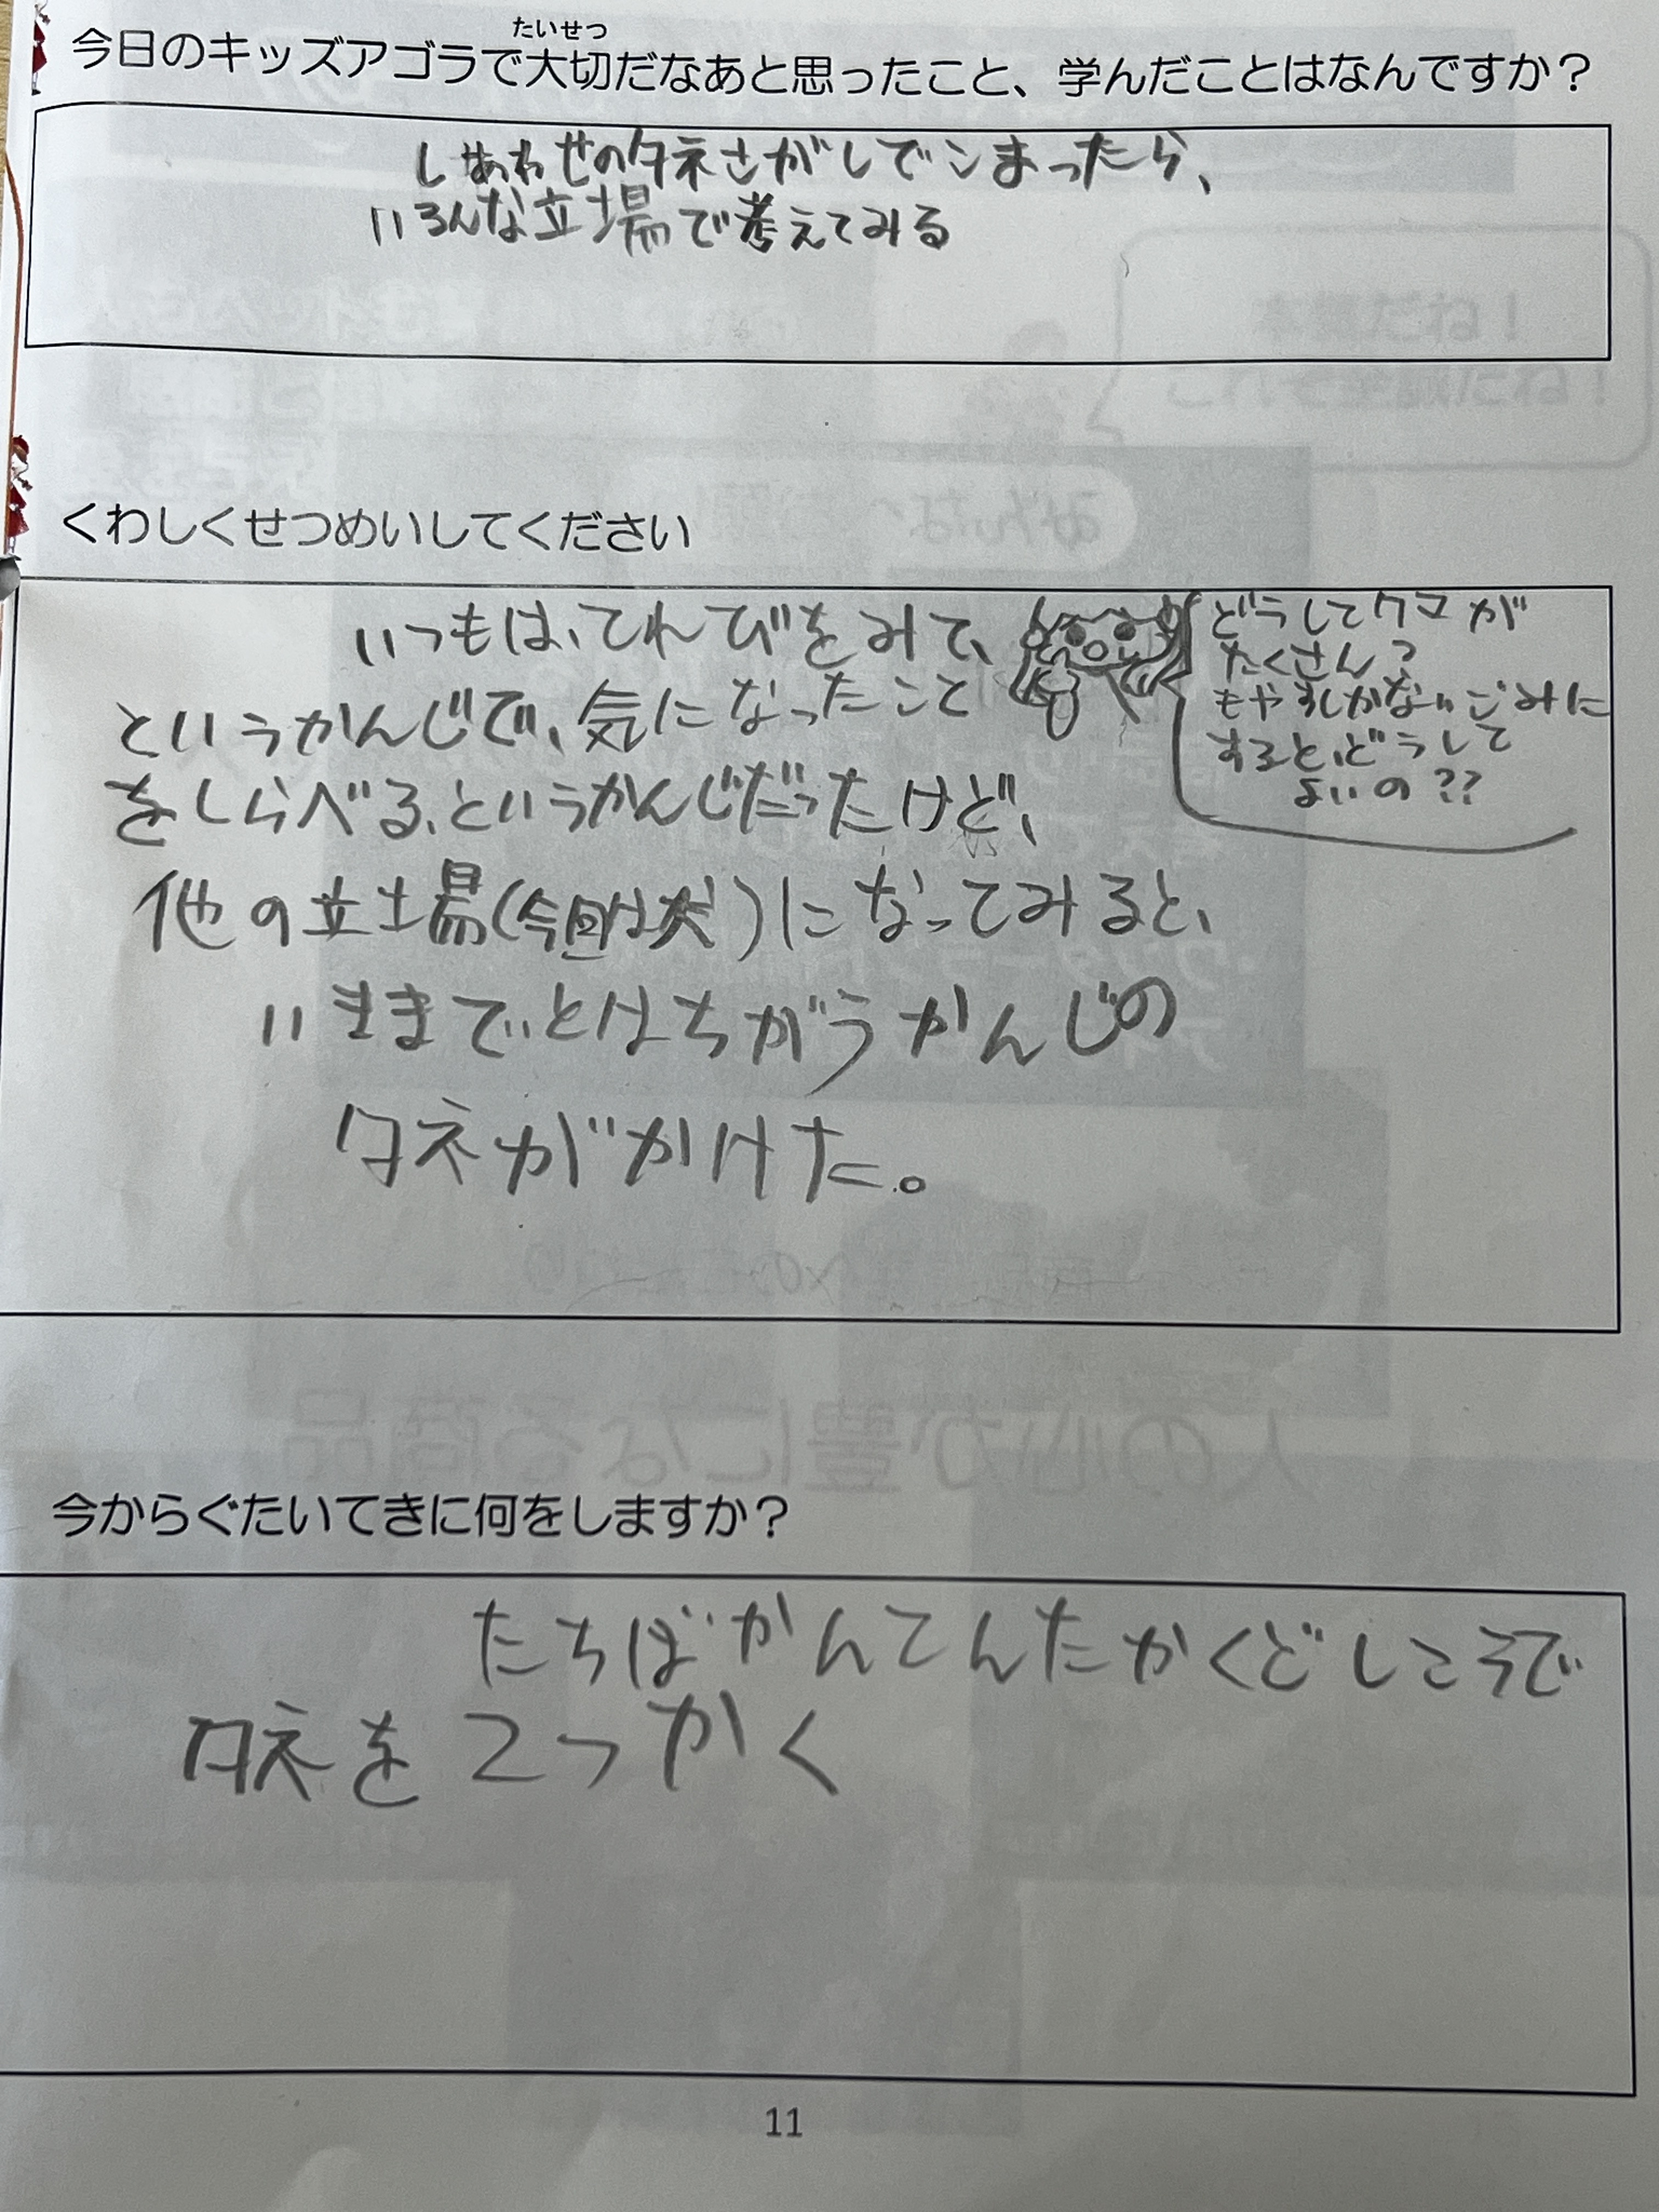 たいせつ
今日のキッズアゴラで大切だなあと思ったこと、学んだことはなんですか?
しあわせのタネさがしでこまったら、
いろんな立場で考えてみる
くわしくせつめいしてください
いつもは、てれびをみて、
どうしてクマが
たくさん?
もやすしかないごみに
すると、どうして
よいの??
というかんじで、気になったこと
をしらべる、というかんじだったけど、
他の立場(今回は犬)になってみると、
いままでとはちがうかんじの
タネがかけた。
今からぐたいてきに何をしますか?
たちばかんてんたかくどしこうで
タネを2つかく
11